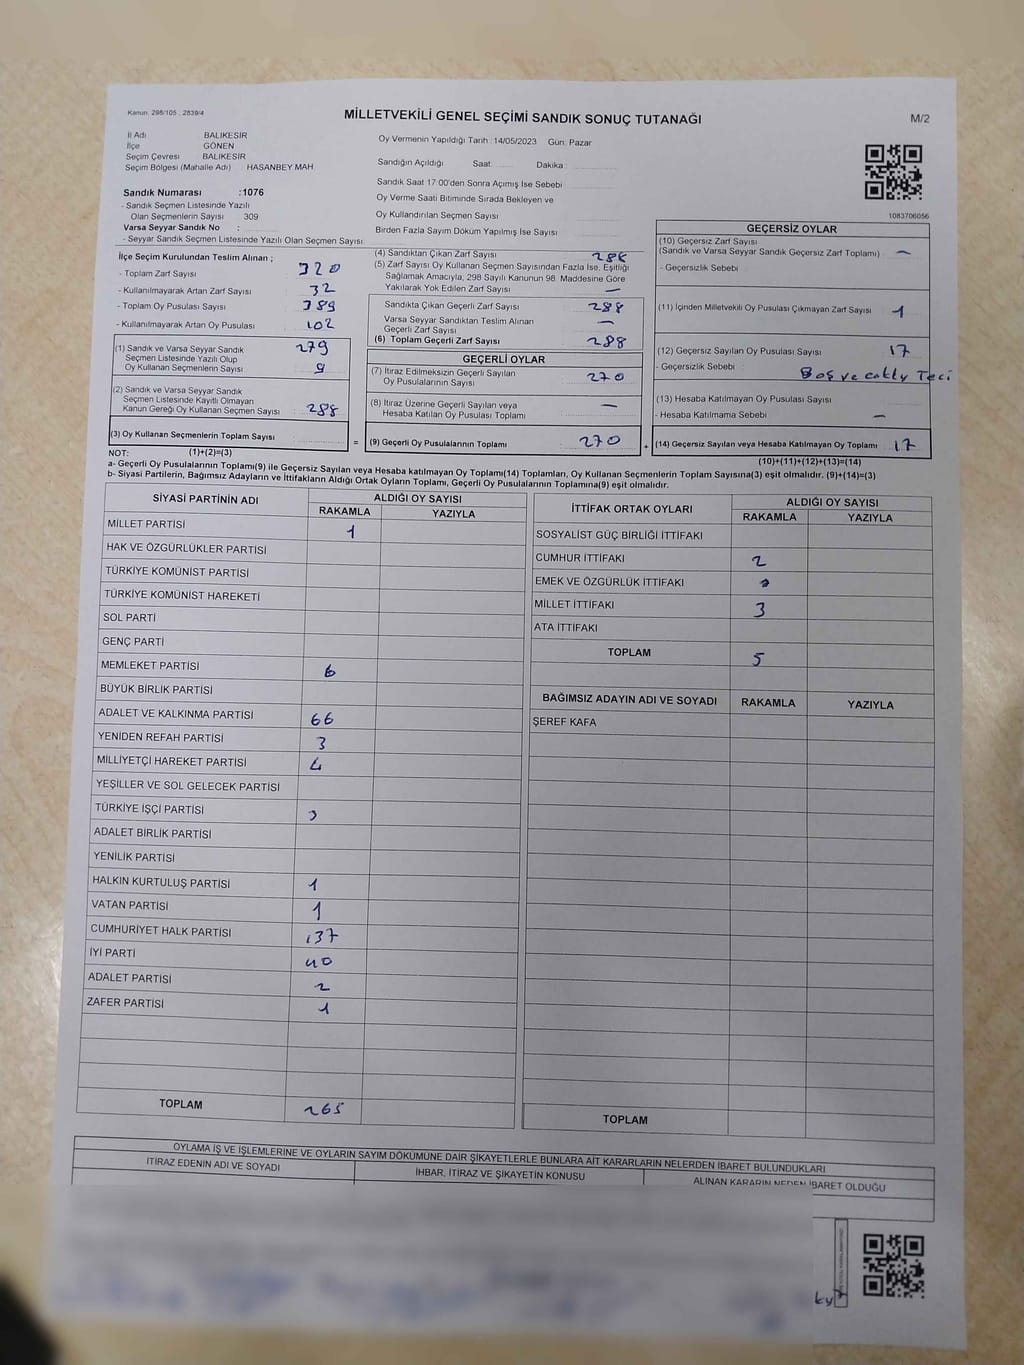 Kanun: 298/105 ; 2839/4
MİLLETVEKİLİ GENEL SEÇİMİ SANDIK SONUÇ TUTANAĞI
M/2
İl Adı BALIKESİR
İlçe GÖNEN
Seçim Çevresi BALIKESİR
Seçim Bölgesi (Mahalle Adı) HASANBEY MAH.
Sandık Numarası :1076
- Sandık Seçmen Listesinde Yazılı
Olan Seçmenlerin Sayısı 309
Varsa Seyyar Sandık No :
- Seyyar Sandık Seçmen Listesinde Yazılı Olan Seçmen Sayısı:
Oy Vermenin Yapıldığı Tarih : 14/05/2023 Gün: Pazar
Sandığın Açıldığı Saat: Dakika:
Sandık Saat 17:00'den Sonra Açımış İse Sebebi
Oy Verme Saati Bitiminde Sırada Bekleyen ve
Oy Kullandırılan Seçmen Sayısı
Birden Fazla Sayım Döküm Yapılmış İse Sayısı
1083706056
İlçe Seçim Kurulundan Teslim Alınan ;
- Toplam Zarf Sayısı 320
- Kullanılmayarak Artan Zarf Sayısı 32
- Toplam Oy Pusulası Sayısı 389
- Kullanılmayarak Artan Oy Pusulası 102
(1) Sandık ve Varsa Seyyar Sandık 279
Seçmen Listesinde Yazılı Olup
Oy Kullanan Seçmenlerin Sayısı 9
(2) Sandık ve Varsa Seyyar Sandık
Seçmen Listesinde Kayıtlı Olmayan
Kanun Gereği Oy Kullanan Seçmen Sayısı 288
(3) Oy Kullanan Seçmenlerin Toplam Sayısı =
(4) Sandıktan Çıkan Zarf Sayısı 288
(5) Zarf Sayısı Oy Kullanan Seçmen Sayısından Fazla İse, Eşitliği
Sağlamak Amacıyla, 298 Sayılı Kanunun 98. Maddesine Göre
Yakılarak Yok Edilen Zarf Sayısı —
Sandıkta Çıkan Geçerli Zarf Sayısı 288
Varsa Seyyar Sandıktan Teslim Alınan
Geçerli Zarf Sayısı —
(6) Toplam Geçerli Zarf Sayısı 288
GEÇERLİ OYLAR
(7) İtiraz Edilmeksizin Geçerli Sayılan
Oy Pusulalarının Sayısı 270
(8) İtiraz Üzerine Geçerli Sayılan veya
Hesaba Katılan Oy Pusulası Toplamı —
(9) Geçerli Oy Pusulalarının Toplamı 270 +
GEÇERSİZ OYLAR
(10) Geçersiz Zarf Sayısı
(Sandık ve Varsa Seyyar Sandık Geçersiz Zarf Toplamı) : —
- Geçersizlik Sebebi
(11) İçinden Milletvekili Oy Pusulası Çıkmayan Zarf Sayısı 1
(12) Geçersiz Sayılan Oy Pusulası Sayısı 17
- Geçersizlik Sebebi : Boş ve
(13) Hesaba Katılmayan Oy Pusulası Sayısı
- Hesaba Katılmama Sebebi —
(14) Geçersiz Sayılan veya Hesaba Katılmayan Oy Toplamı 17
NOT: (1)+(2)=(3)
(10)+(11)+(12)+(13)=(14)
a- Geçerli Oy Pusulalarının Toplamı(9) ile Geçersiz Sayılan veya Hesaba katılmayan Oy Toplamı(14) Toplamları, Oy Kullanan Seçmenlerin Toplam Sayısına(3) eşit olmalıdır. (9)+(14)=(3)
b- Siyasi Partilerin, Bağımsız Adayların ve İttifakların Aldığı Ortak Oyların Toplamı, Geçerli Oy Pusulalarının Toplamına(9) eşit olmalıdır.
SİYASİ PARTİNİN ADI ALDIĞI OY SAYISI
RAKAMLA YAZIYLA
MİLLET PARTİSİ 1
HAK VE ÖZGÜRLÜKLER PARTİSİ
TÜRKİYE KOMÜNİST PARTİSİ
TÜRKİYE KOMÜNİST HAREKETİ
SOL PARTİ
GENÇ PARTİ
MEMLEKET PARTİSİ 6
BÜYÜK BİRLİK PARTİSİ
ADALET VE KALKINMA PARTİSİ 66
YENİDEN REFAH PARTİSİ 3
MİLLİYETÇİ HAREKET PARTİSİ 4
YEŞİLLER VE SOL GELECEK PARTİSİ
TÜRKİYE İŞÇİ PARTİSİ 3
ADALET BİRLİK PARTİSİ
YENİLİK PARTİSİ
HALKIN KURTULUŞ PARTİSİ 1
VATAN PARTİSİ 1
CUMHURİYET HALK PARTİSİ 137
İYİ PARTİ 40
ADALET PARTİSİ 2
ZAFER PARTİSİ 1
TOPLAM 265
İTTİFAK ORTAK OYLARI ALDIĞI OY SAYISI
RAKAMLA YAZIYLA
SOSYALİST GÜÇ BİRLİĞİ İTTİFAKI
CUMHUR İTTİFAKI 2
EMEK VE ÖZGÜRLÜK İTTİFAKI
MİLLET İTTİFAKI 3
ATA İTTİFAKI
TOPLAM 5
BAĞIMSIZ ADAYIN ADI VE SOYADI RAKAMLA YAZIYLA
ŞEREF KAFA
TOPLAM
OYLAMA İŞ VE İŞLEMLERİNE VE OYLARIN SAYIM DÖKÜMÜNE DAİR ŞİKAYETLERLE BUNLARA AİT KARARLARIN NELERDEN İBARET BULUNDUKLARI
İTİRAZ EDENİN ADI VE SOYADI İHBAR, İTİRAZ VE ŞİKAYETİN KONUSU ALINAN KARARIN NEDEN İBARET OLDUĞU